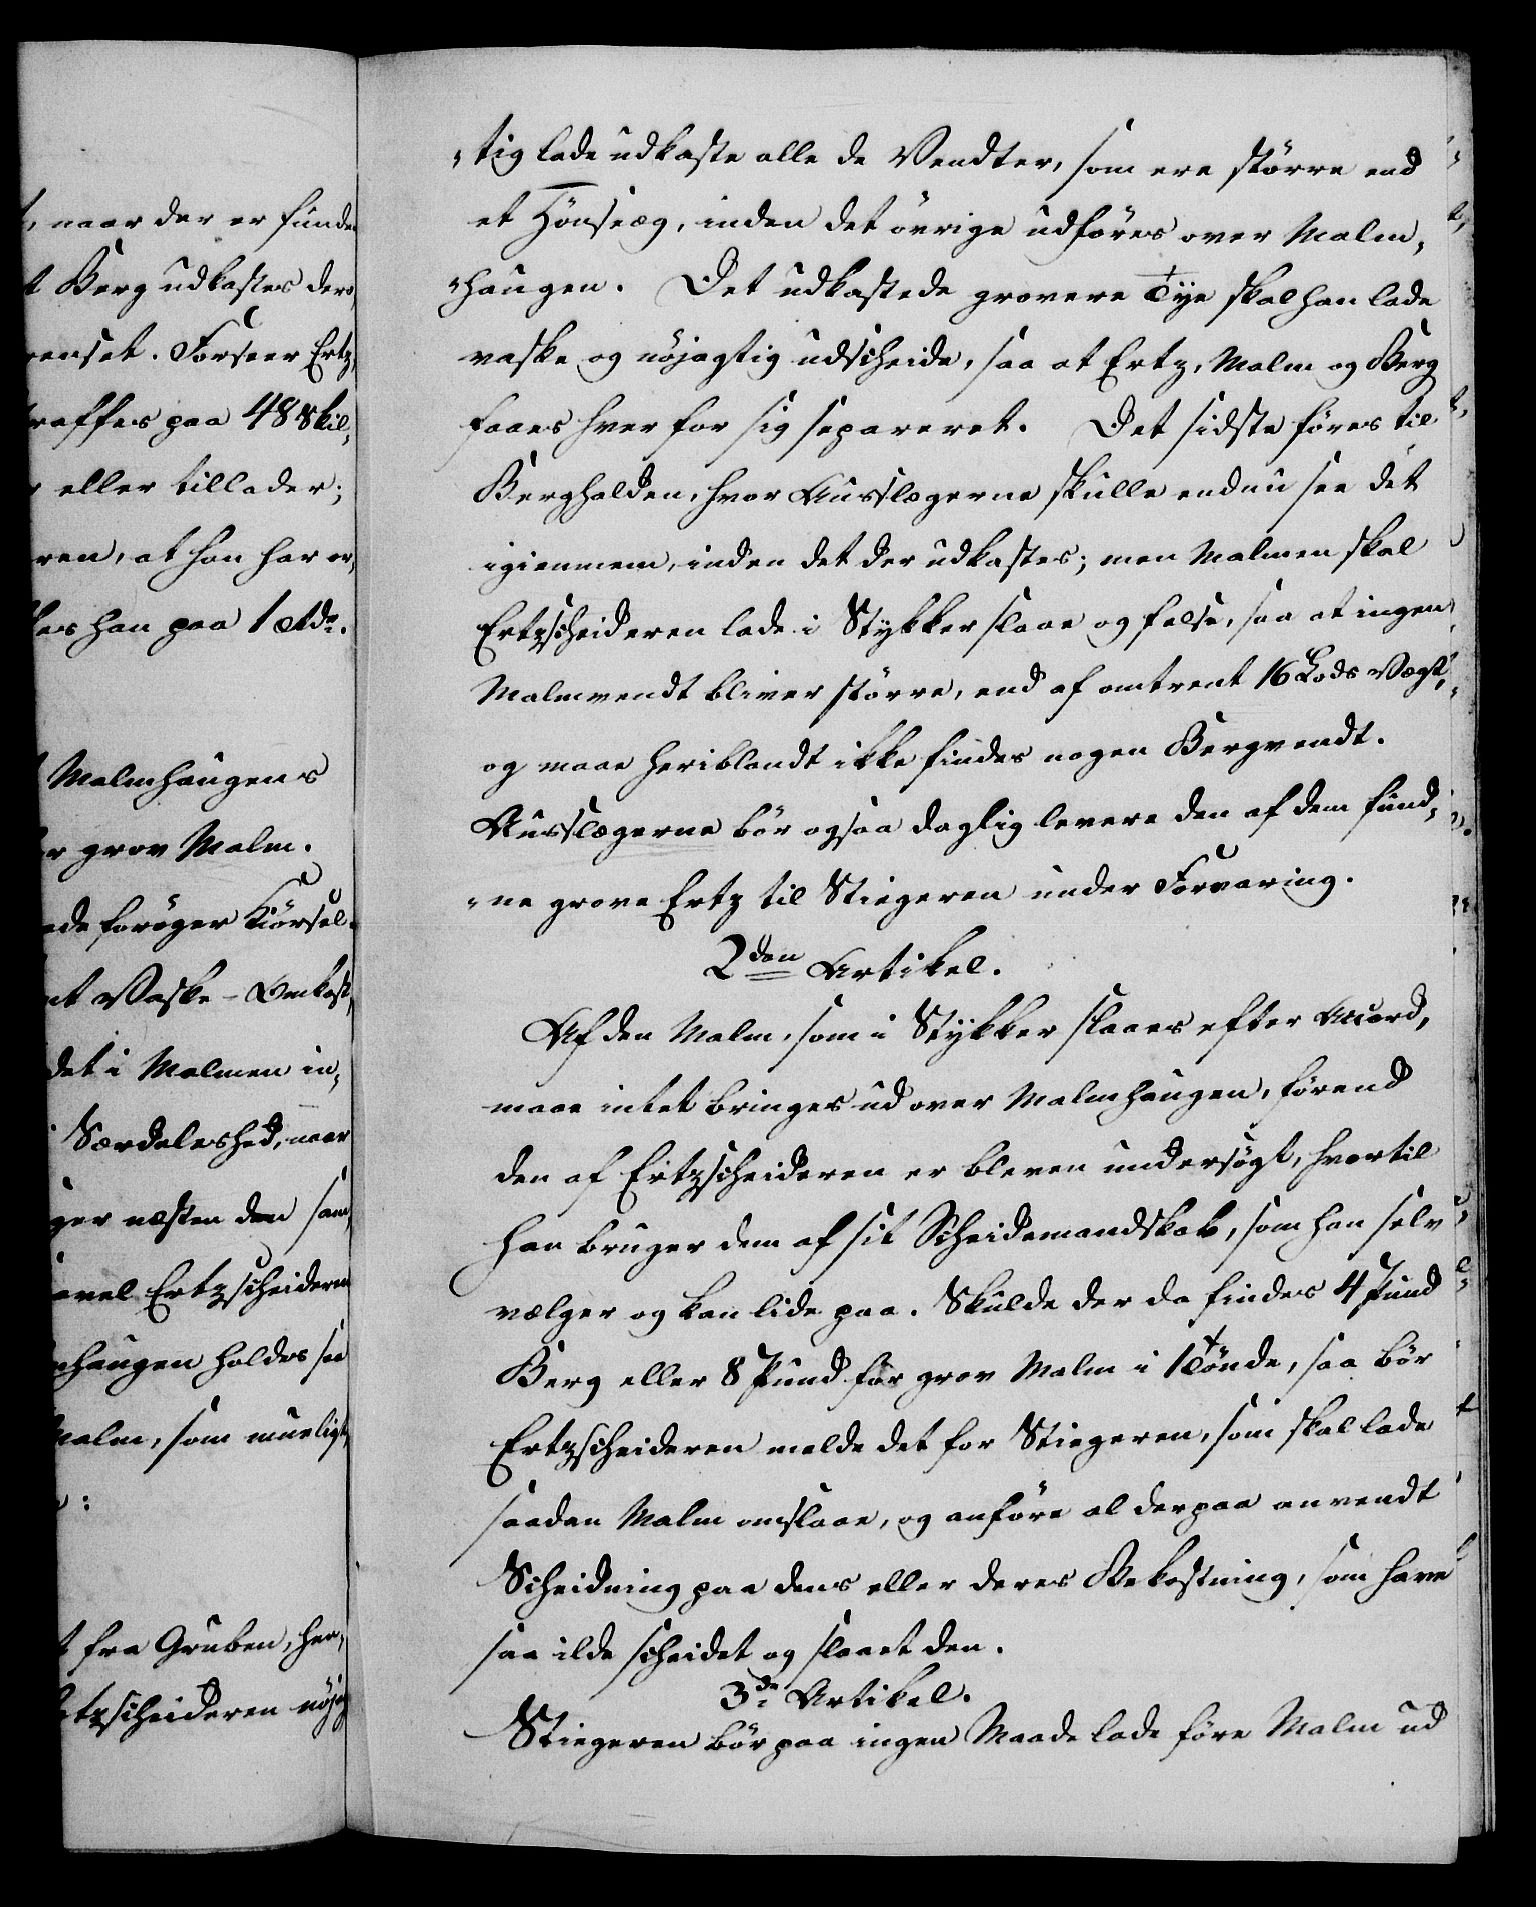 , naar der er funde
t Berg udkastes ders,
renset. Forseer Ertz,
raffes paa 48 Skil,
eller tillader;
ren, at han har er,
kes han paa 1
Malmhaugens
r grov Malm.
ede forøger Kiørsel
nt Vaske-Omkost,
det i Malmen in,
Særdeleshed, naar
ger næsten den sam,
avel Ertzscheideren
nhaugen holdes sn
Malm, som mueligt,
:
t fra Gruben, her,
rtzscheideren nøjag
"tig lade udkaste alle de Vendter, som ere større end
et Hønseæg, inden det øvrige udføres over Malm,
"haugen. Det udkastede grovere Tye skal han lade
vaske og nøjagtig udscheide, saa at Ertz, Malm og Berg
faaes hver for sig separeret. Det sidste føres til
Berghalden, hvor Ausslægerne skulle endnu see det
igiennem, inden det der udkastes; men Malmen skal
Ertzscheideren lade i Stykker slaae og felse, saa at ingen
Malmvendt bliver større, end af omtrent 16 Lods Vægt,
og maae heriblandt ikke findes nogen Bergvendt.
Ausslægerne bør ogsaa daglig levere den af dem fund,
"ne grove Ertz til Stiegeren under Forvaring.
2den Artikel.
Af den Malm, som i Stykker slaaes efter Accord,
maae intet bringes ud over Malmhaugen, førend
den af Ertzscheideren er bleven undersøgt, hvortil
han bruger dem af sit Scheidemandskab, som han selv
vælger og kan lide paa. Skulde der da findes 4 Pund
Berg eller 8 Pund for grov Malm i 1 Tønde, saa bør
Ertzscheideren melde det for Stiegeren, som skal lade
saadan Malm omslaae, og anføre al derpaa anvendt
Scheidning paa dens eller deres Bekostning, som have
saa ilde scheidet og slaaet den.
3de Artikel.
Stiegeren bør paa ingen Maade lade føre Malm ud